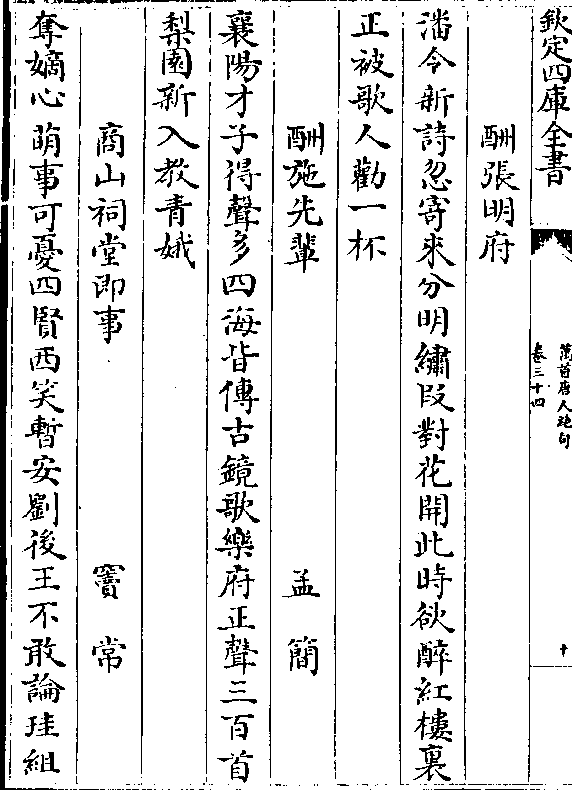 欽定四庫全書
萬首唐人絶句
卷三十四
十
酬張明府
潘令新詩忽寄來分明繡段對花開此時欲醉紅樓裏
正被歌人勸一杯
酬施先輩 孟簡
襄陽才子得聲多四海皆傳古鏡歌樂府正聲三百首
梨園新入教青娥
商山祠堂即事 竇常
奪嫡心萌事可憂四賢西笑暫安劉後王不敢論珪組